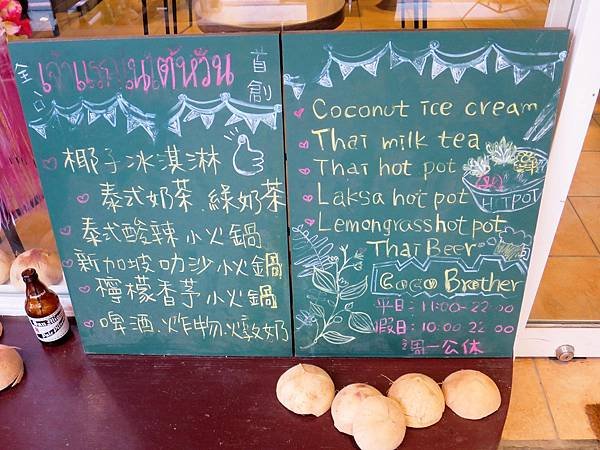 全台
เจ้าแรกในไต้หวัน
首創
椰子冰淇淋
泰式奶茶.綠奶茶
泰式酸辣小火鍋
新加坡叻沙小火鍋
檸檬香芋小火鍋
啤酒.炸物.燉奶
Coconut ice cream
Thai milk tea
Thai hot pot
Laksa hot pot
Lemongrass hot pot
Thai Beer
HOTPOT
CoCo Brother
平日:11:00-22:00
假日:10:00-22:00
週一公休